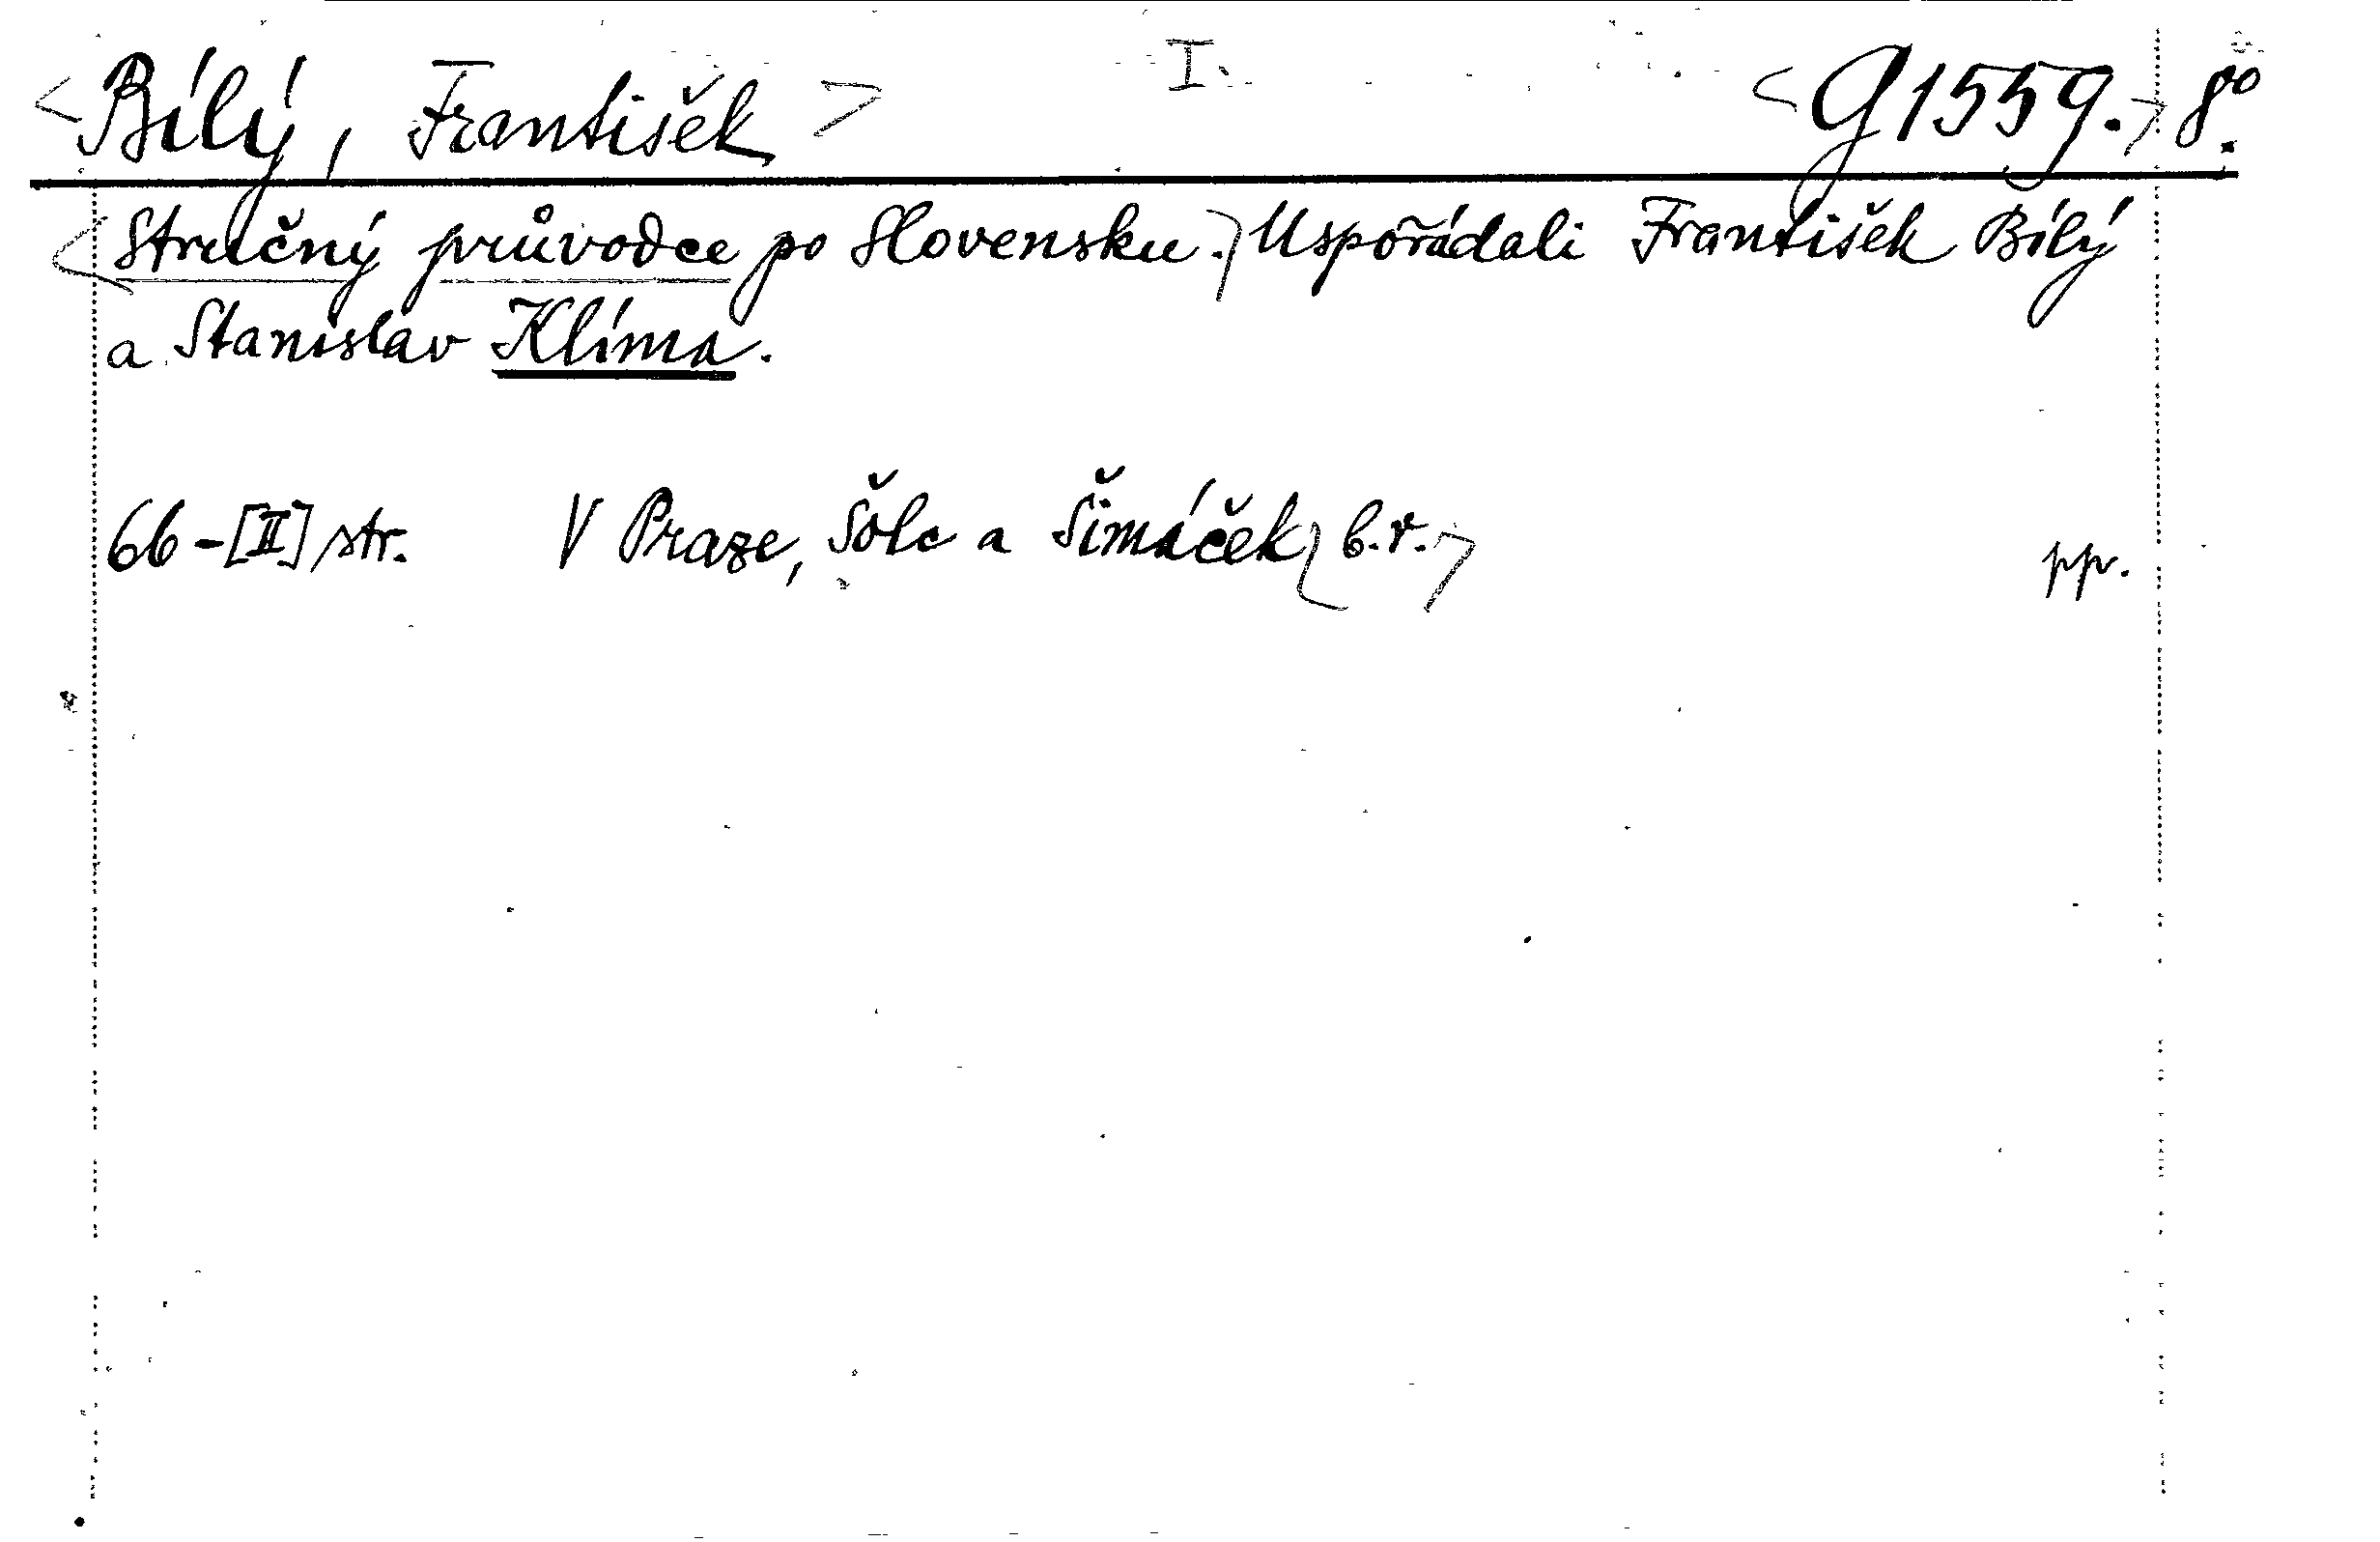 <Bílý, František> I. <G1559.> 8°.
<Stručný průvodce po Slovensku.> Uspořádali František Bílý
a Stanislav Klíma.
66-[II] str. V Praze, Šolc a Šimáček <b.r.> pp.